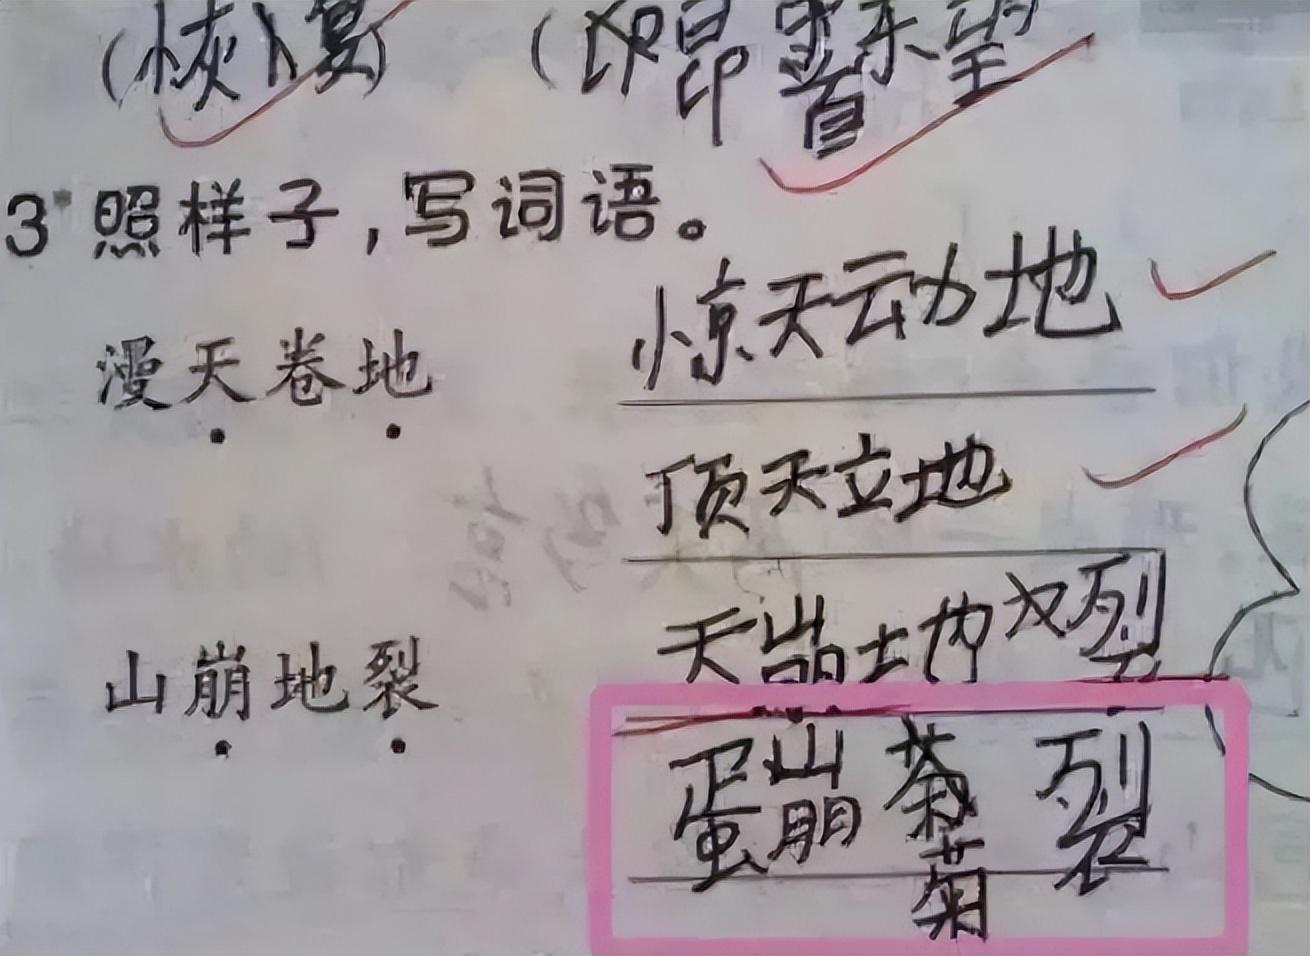 (恢复) (昂首东望
3 照样子,写词语。
惊天动地
漫天卷地
顶天立地
天崩地裂
山崩地裂
蛋崩菊裂